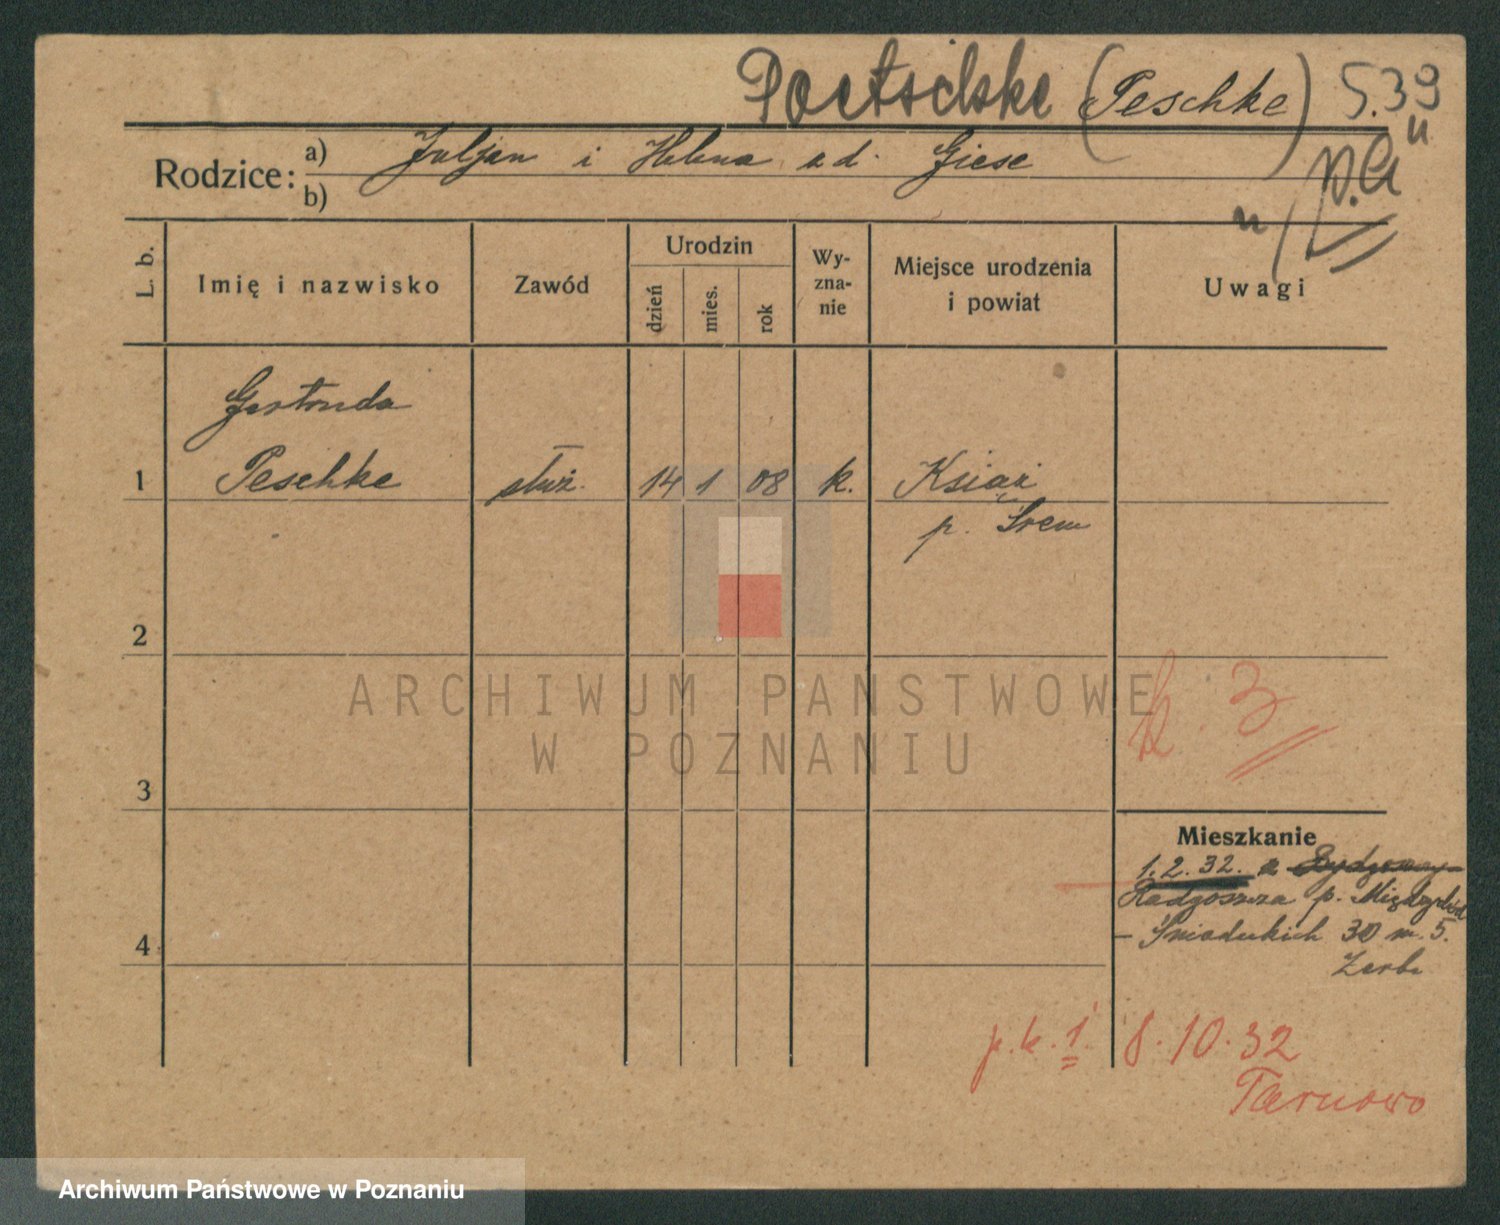 Poetschke (Peschke) 5.39
Rodzice:
a) Juljan i Helena z d. Giese
b)
p.a
L. b.
Imię i nazwisko
Zawód
Urodzin
dzień
mies.
rok
Wy-
zna-
nie
Miejsce urodzenia
i powiat
Uwagi
Gertruda
1 Peschke służ. 14 1 08 k. Książ
p. Śrem
2
k. 3
3
4
Mieszkanie
1.2.32. z Bydgoszczy
Radgoszcza p. Międzychód
– Śniadeckich 30 m. 5.
Zerbe
p.k. 1. 8.10.32
Tarnowo
ARCHIWUM PAŃSTWOWE
W POZNANIU
Archiwum Państwowe w Poznaniu